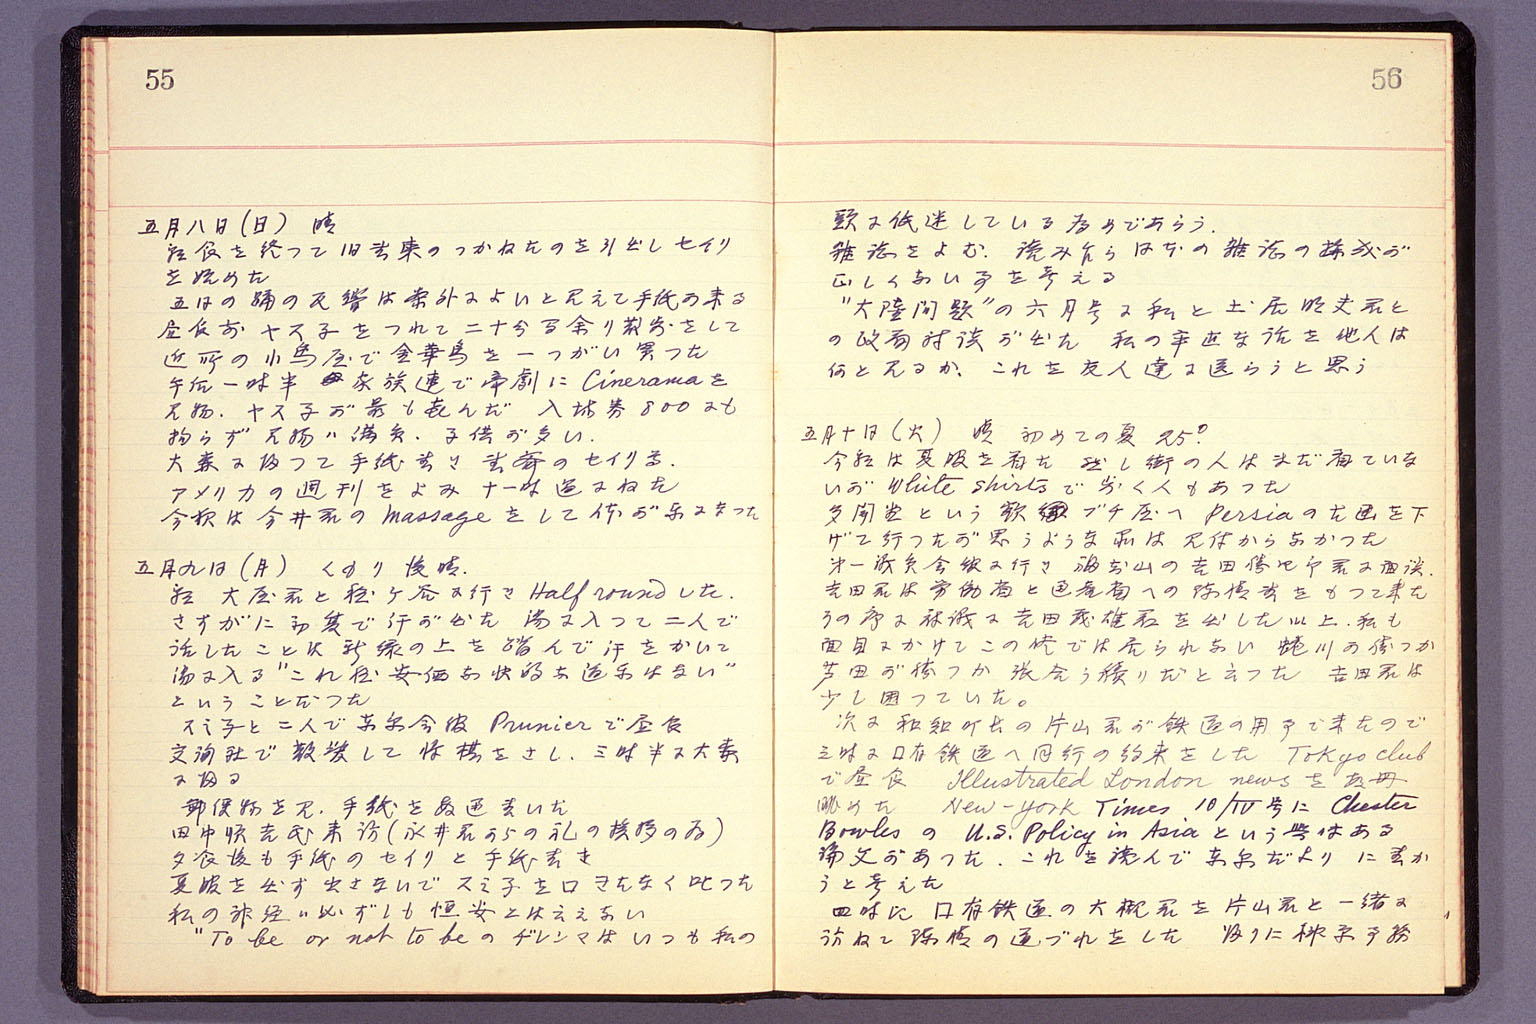 55
五月八日(日) 晴
朝食を終つて旧書束のつかねたのを引出しセイリ
を始めた
五日の 踊の反響は案外によいと見えて手紙が来る
昼食前 ヤス子をつれて二十分 余り散歩をして
近所の小鳥屋で金華鳥を一つがい買つた
午后一時半 家族連で帝劇に Cineramaを
見物. ヤス子が最も喜んだ 入場券800にも
拘らず 見物ハ満員. 子供が多い.
大森に帰つて手紙書き 書斎のセイリする.
アメリカの週刊をよみ 十一時過にねた
今夜は今井君の massageをして体が楽になつた
五月九日(月) くもり 後晴.
朝 大屋君と程ケ谷に行き Half roundした.
さすがに初夏で汗が出た 湯に入つて二人で
話したことは新緑の上を踏んで汗をかいて
湯に入る "これ程安価な快的な道楽はない"
ということだつた
スミ子と二人で東京会館 Prunierで昼食
交詢社で散髪して将棋をさし. 三時半に大森
に帰る
郵便物を見. 手紙を数通書いた
田中 吉氏来訪(永井君からの礼の挨拶の為)
夕食後も手紙のセイリと手紙書き
夏服を出す出さないでスミ子を口ぎたなく叱つた
私の神経ハ必ずしも恒安とは云えない
"To be or not to beのヂレンマはいつも私の
56
頭に低迷している為めであらう.
雑誌をよむ. 読み乍ら日本の雑誌の構成が
正しくない事を考える
"大陸問題"の六月号に私と土居明夫君と
の政商対談が出た 私の率直な話を他人は
何と見るか. これを友人達に送らうと思う
五月十日(火) 晴 初めての夏 25°
今朝は夏服を着た 然し街の人はまだ着ていな
いが White shirtsで歩く人もあつた
多聞堂という ブチ屋へ Persiaの古画を下
げて行つたが思うような 見付からなかつた
第一議員会館に行き の吉田 君に面談.
吉田君は労働者と生産者への陳情書をもつて来た
その席に 吉田 雄君を出した以上. 私も
面目にかけてこの侭では居られない 川が勝つか
芦田が勝つか 張合う積りだと云つた 吉田君は
少し困つていた。
次に和知町長の片山君が鉄道の用事で来たので
三時に日本鉄道へ同行の約束をした Tokyo club
で昼食 Illustrated London newsを 冊
眺めた New-york Times 10/IV号に Chester
Bowlesの U.S. Policy in Asiaという興味ある
論文があつた. これを読んで東京だよりに書か
うと考えた
四時に 日本鉄道の大槻君を片山君と一緒に
訪ねて陳情の道づれをした 帰りに 事務